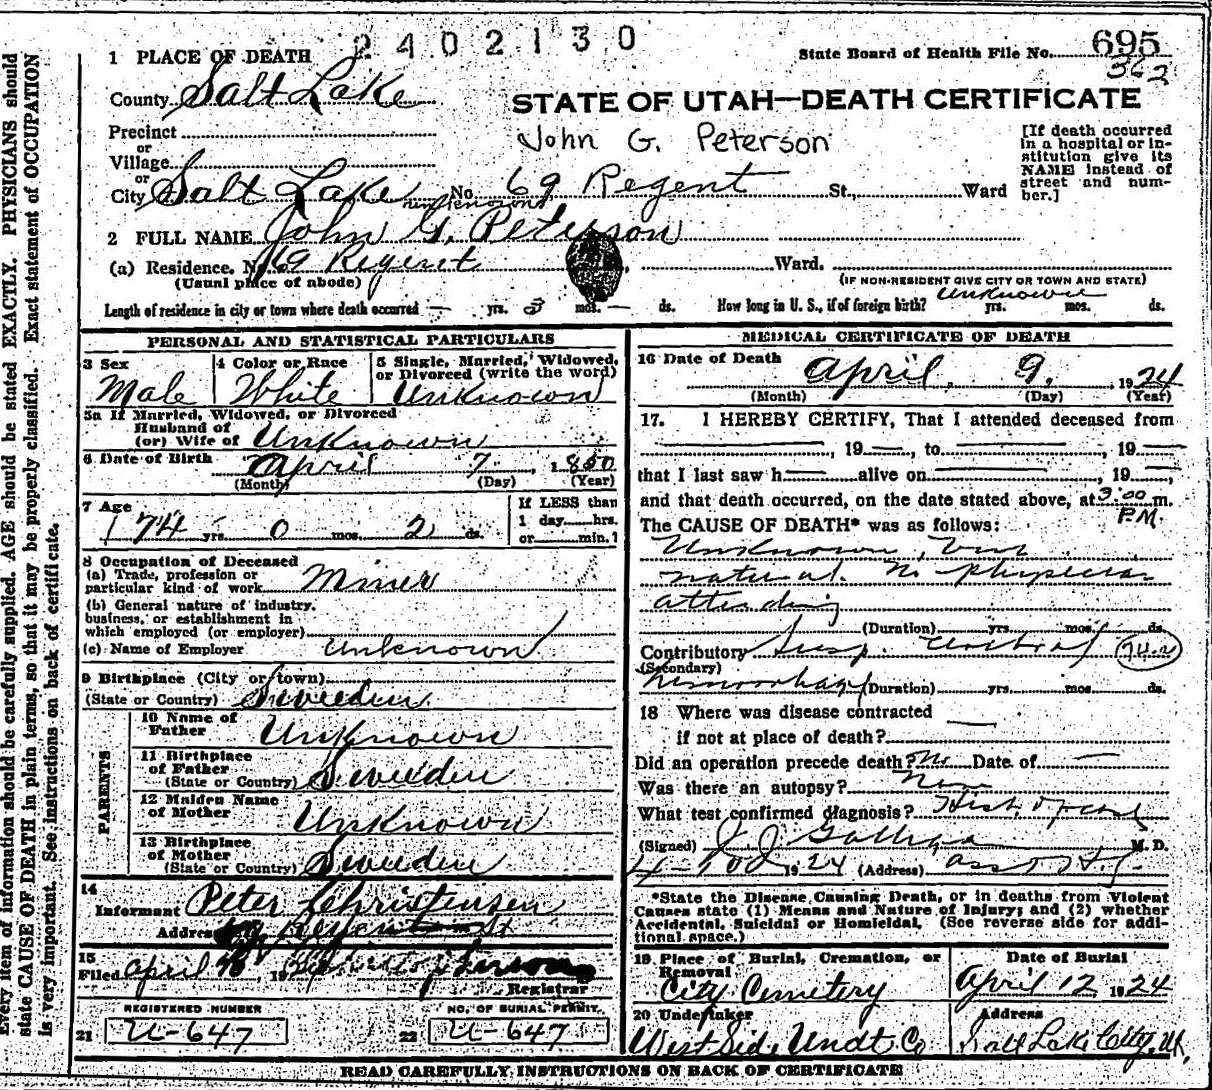 2402130
State Board of Health File No. 695
362
1 PLACE OF DEATH
County Salt Lake
STATE OF UTAH—DEATH CERTIFICATE
John G. Peterson
Precinct
or
Village
or
City Salt Lake No. 69 Regent St., Ward
[If death occurred
in a hospital or in-
stitution give its
NAME instead of
street and num-
ber.]
2 FULL NAME John G. Peterson
(a) Residence. No. 69 Regent Ward.
(Usual place of abode)
(IF NON-RESIDENT GIVE CITY OR TOWN AND STATE)
Length of residence in city or town where death occurred — yrs. 3 mos. — ds. How long in U. S., if of foreign birth? Unknown yrs. mos. ds.
PERSONAL AND STATISTICAL PARTICULARS
3 Sex
Male
4 Color or Race
White
5 Single, Married, Widowed,
or Divorced (write the word)
Unknown
5a If Married, Widowed, or Divorced
Husband of
(or) Wife of Unknown
6 Date of Birth April 7, 1850
(Month) (Day) (Year)
7 Age
74 yrs. 0 mos. 2 ds.
If LESS than
1 day hrs.
or min.?
8 Occupation of Deceased
(a) Trade, profession or
particular kind of work Miner
(b) General nature of industry,
business, or establishment in
which employed (or employer)
(c) Name of Employer Unknown
9 Birthplace (City or town)
(State or Country) Sweeden
PARENTS
10 Name of
Father Unknown
11 Birthplace
of Father
(State or Country) Sweeden
12 Maiden Name
of Mother Unknown
13 Birthplace
of Mother
(State or Country) Sweeden
14
Informant Peter Christensen
Address 69 Regent St
15
Filed April 192
Registrar
REGISTERED NUMBER
21 U-647
NO. OF BURIAL PERMIT.
22 U-647
MEDICAL CERTIFICATE OF DEATH
16 Date of Death April 9, 1924
(Month) (Day) (Year)
17. I HEREBY CERTIFY, That I attended deceased from
—, 19—, to —, 19—
that I last saw h— alive on —, 19—,
and that death occurred, on the date stated above, at 3:00 m.
P.M.
The CAUSE OF DEATH* was as follows:
Unknown, but
natural. No physician
attending
(Duration) yrs. mos. ds.
Contributory Susp. Cerebral 74-2
(Secondary)
hemorrhage (Duration) yrs. mos. ds.
18 Where was disease contracted
if not at place of death? —
Did an operation precede death? No Date of —
Was there an autopsy? No
What test confirmed diagnosis? Hist.
(Signed) J J Galligan M. D.
4-10 1924 (Address)
*State the Disease Causing Death, or in deaths from Violent
Causes state (1) Means and Nature of Injury; and (2) whether
Accidental, Suicidal or Homicidal. (See reverse side for addi-
tional space.)
19 Place of Burial, Cremation, or
Removal
City Cemetery
Date of Burial
April 12 1924
20 Undertaker
West Side Undt Co
Address
Salt Lake City, Ut.
READ CAREFULLY INSTRUCTIONS ON BACK OF CERTIFICATE
Every item of information should be carefully supplied. AGE should be stated EXACTLY. PHYSICIANS should
state CAUSE OF DEATH in plain terms, so that it may be properly classified. Exact statement of OCCUPATION
is very important. See instructions on back of certificate.